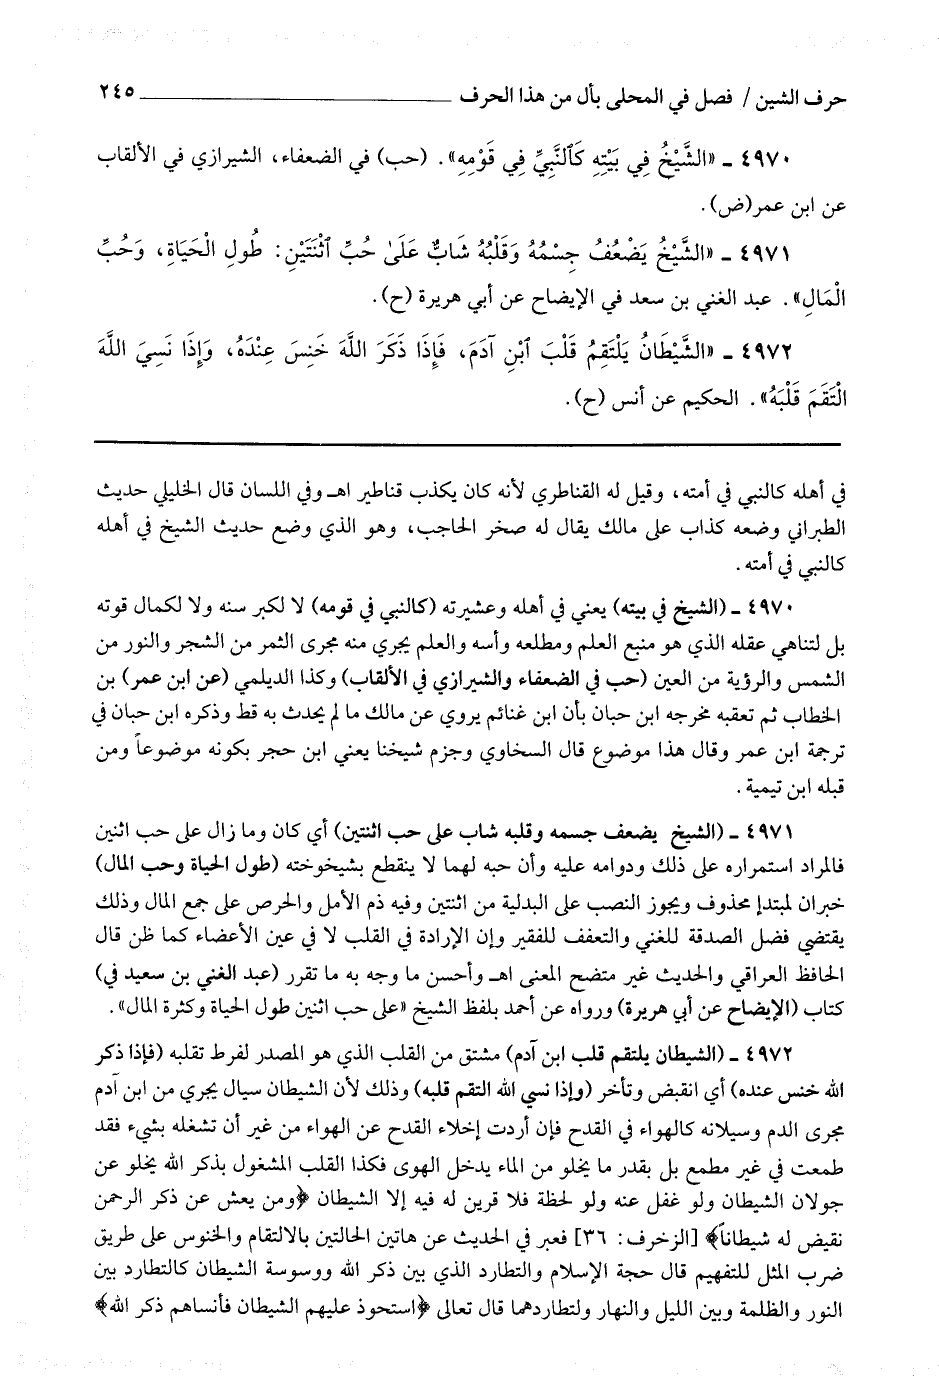 حرف الشين / فصل في المحلى بأل من هذا الحرف ــــــــــــــــــــــــ ٢٤٥
٤٩٧٠ ـ «الشَّيْخُ فِي بَيْتِهِ كَٱلنَّبِيِّ فِي قَوْمِهِ». (حب) في الضعفاء، الشيرازي في الألقاب
عن ابن عمر(ض).
٤٩٧١ ـ «الشَّيْخُ يَضْعُفُ جِسْمُهُ وَقَلْبُهُ شَابٌّ عَلَىٰ حُبِّ ٱثْنَتَيْنِ: طُولِ الْحَيَاةِ، وَحُبِّ
الْمَالِ». عبد الغني بن سعد في الإيضاح عن أبي هريرة (ح).
٤٩٧٢ ـ «الشَّيْطَانُ يَلْتَقِمُ قَلْبَ ٱبْنِ آدَمَ، فَإِذَا ذَكَرَ اللَّهَ خَنِسَ عِنْدَهُ، وَإِذَا نَسِيَ اللَّهَ
الْتَقَمَ قَلْبَهُ». الحكيم عن أنس (ح).
في أهله كالنبي في أمته، وقيل له القناطري لأنه كان يكذب قناطير اهـ وفي اللسان قال الخليلي حديث
الطبراني وضعه كذاب على مالك يقال له صخر الحاجب، وهو الذي وضع حديث الشيخ في أهله
كالنبي في أمته.
٤٩٧٠ ـ (الشيخ في بيته) يعني في أهله وعشيرته (كالنبي في قومه) لا لكبر سنه ولا لكمال قوته
بل لتناهي عقله الذي هو منبع العلم ومطلعه وأسه والعلم يجري منه مجرى الثمر من الشجر والنور من
الشمس والرؤية من العين (حب في الضعفاء والشيرازي في الألقاب) وكذا الديلمي (عن ابن عمر) بن
الخطاب ثم تعقبه مخرجه ابن حبان بأن ابن غنائم يروي عن مالك ما لم يحدث به قط وذكره ابن حبان في
ترجمة ابن عمر وقال هذا موضوع قال السخاوي وجزم شيخنا يعني ابن حجر بكونه موضوعاً ومن
قبله ابن تيمية.
٤٩٧١ ـ (الشيخ يضعف جسمه وقلبه شاب على حب اثنتين) أي كان وما زال على حب اثنين
فالمراد استمراره على ذلك ودوامه عليه وأن حبه لهما لا ينقطع بشيخوخته (طول الحياة وحب المال)
خبران لمبتدإ محذوف ويجوز النصب على البدلية من اثنتين وفيه ذم الأمل والحرص على جمع المال وذلك
يقتضي فضل الصدقة للغني والتعفف للفقير وإن الإرادة في القلب لا في عين الأعضاء كما ظن قال
الحافظ العراقي والحديث غير متضح المعنى اهـ وأحسن ما وجه به ما تقرر (عبد الغني بن سعيد في)
كتاب (الإيضاح عن أبي هريرة) ورواه عن أحمد بلفظ الشيخ «على حب اثنين طول الحياة وكثرة المال».
٤٩٧٢ ـ (الشيطان يلتقم قلب ابن آدم) مشتق من القلب الذي هو المصدر لفرط تقلبه (فإذا ذكر
الله خنس عنده) أي انقبض وتأخر (وإذا نسي الله التقم قلبه) وذلك لأن الشيطان سيال يجري من ابن آدم
مجرى الدم وسيلانه كالهواء في القدح فإن أردت إخلاء القدح عن الهواء من غير أن تشغله بشيء فقد
طمعت في غير مطمع بل بقدر ما يخلو من الماء يدخل الهوى فكذا القلب المشغول بذكر الله يخلو عن
جولان الشيطان ولو غفل عنه ولو لحظة فلا قرين له فيه إلا الشيطان ﴿ومن يعش عن ذكر الرحمن
نقيض له شيطاناً﴾ [الزخرف: ٣٦] فعبر في الحديث عن هاتين الحالتين بالالتقام والخنوس على طريق
ضرب المثل للتفهيم قال حجة الإسلام والتطارد الذي بين ذكر الله ووسوسة الشيطان كالتطارد بين
النور والظلمة وبين الليل والنهار ولتطاردهما قال تعالى ﴿استحوذ عليهم الشيطان فأنساهم ذكر الله﴾